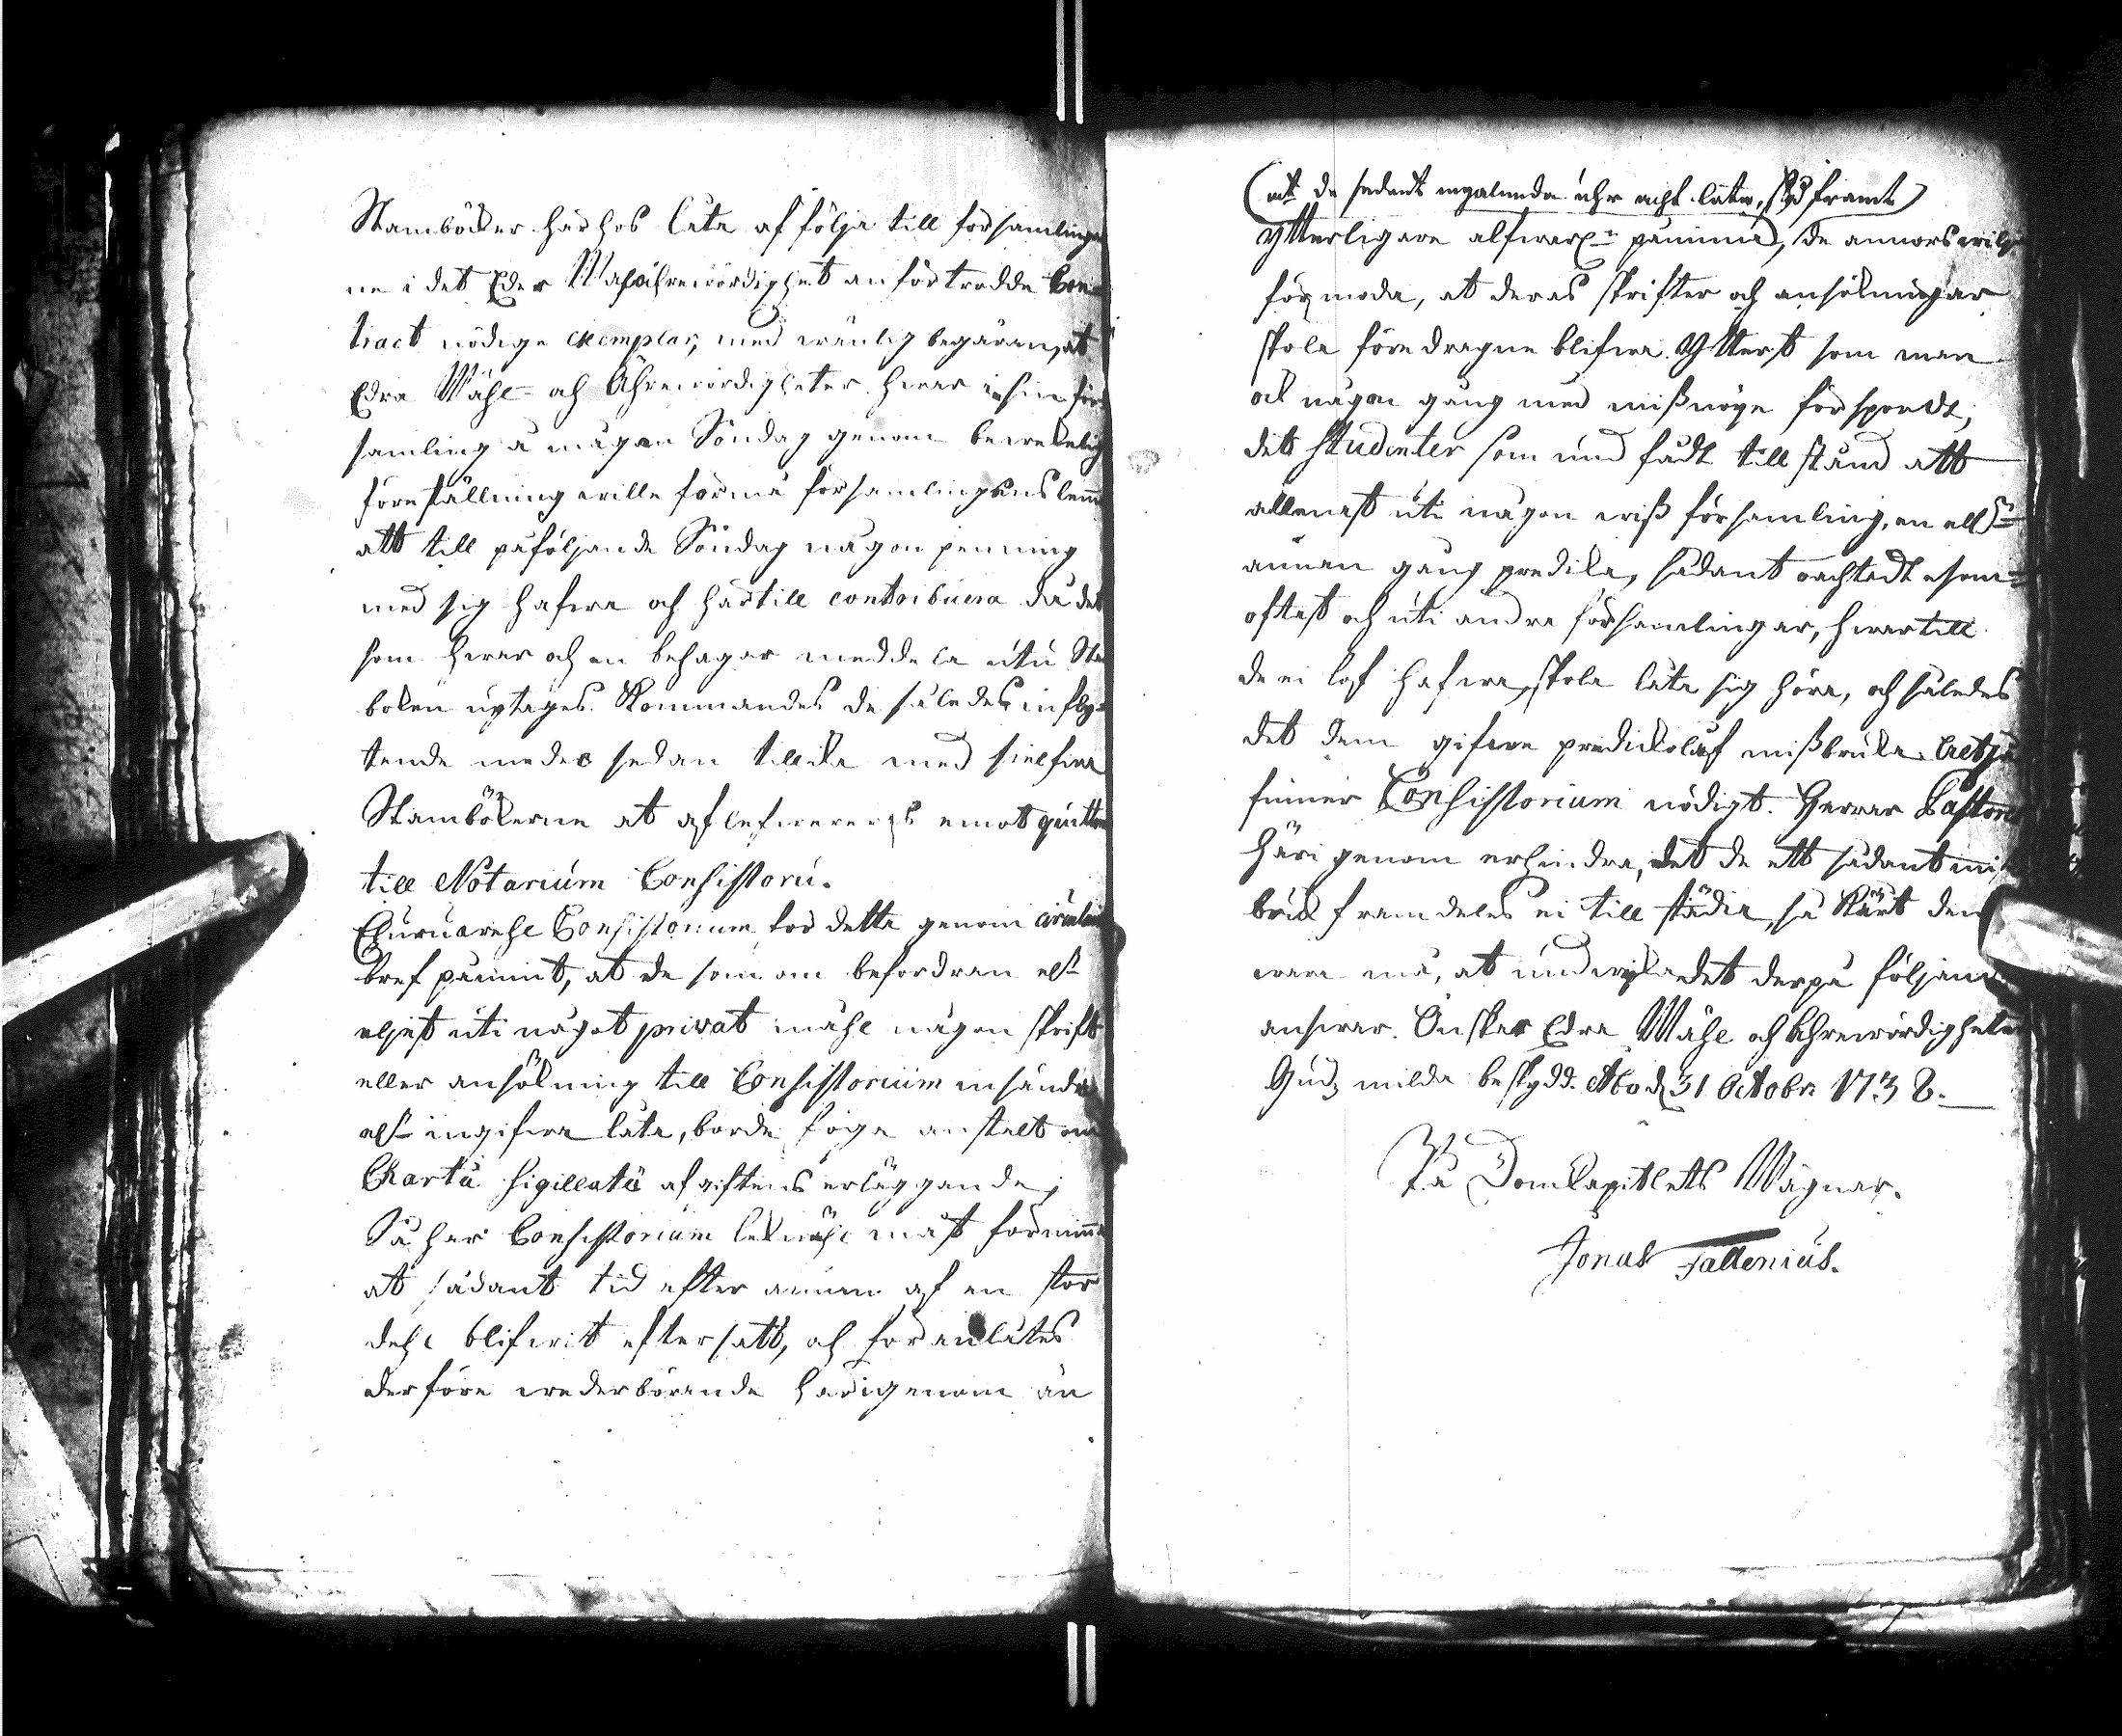 Stamböcker härhos låta affölja till församlingar
ne i det Eder Wälährewördighet anförtrodde Con-
tract nödige exemplar, med wänlig begäran, at
Edra Wähl- och Ährewördigheter hwar i sin för-
samling å någon Söndag genom bewekelig
föreställning wille förmå församlingens lemmar
att till påföljande Söndag någon penning
med sig hafwa och härtill contribuera då det
som hwar och en behagar meddela utu Stam
boken uptages. Kommandes de således influ-
tende medel sedan tillika med sielfwa
Stamböckerne at aflefwereras emot quitto
till Notarium Consistorii.
Ehuruwehl Consistorium för detta genom circulair
bref påmint, at de som om befordran elr
eljest uti något privat måhl någon skrift
eller ansökning till Consistorium insända
elr ingifwa låta, borde foga anstalt om
Chartæ Sigillatæ afgiftens erläggande;
Så har Consistorium lickwähl måst förnimma
at sådant tid efter annan af en stor
dehl blifwit eftersatt, och förenlåtes
derföre wederbörande härigenom än
(at de sådant ingalunda uhr acht låta, såframt
ytterligare alfwarl: påminna), de annors wilja
förmoda, at deras skrifter och ansökningar
skola föredragne blifwa. Ytterst som man
ock någon gång med missnöje förspordt,
det Studenter som iind fådt tillstånd att
allenast uti någon wiss församling, en ellr
annan gång predika, sådant oachtadt esom-
oftast och uti andra församlingar, hwartill
de ei lof hafwa, skola låta sig höra, och således
det dem gifwne predickolof missbruka. Altså
finner Consistorium nödigt. Herrar Pastores
härigenom erhindra, det de ett sådant miss
bruk framdeles ei tillstädia, så kärt dem
wara må, at undwika det derpå följande
answar. Önskar Edra Wähl och Ährewördigheter
Gudz milda beskydd. Åbo d 31 Octobr: 1738.
På DomCapitlets Wägnar.
Jonas Fallenius.